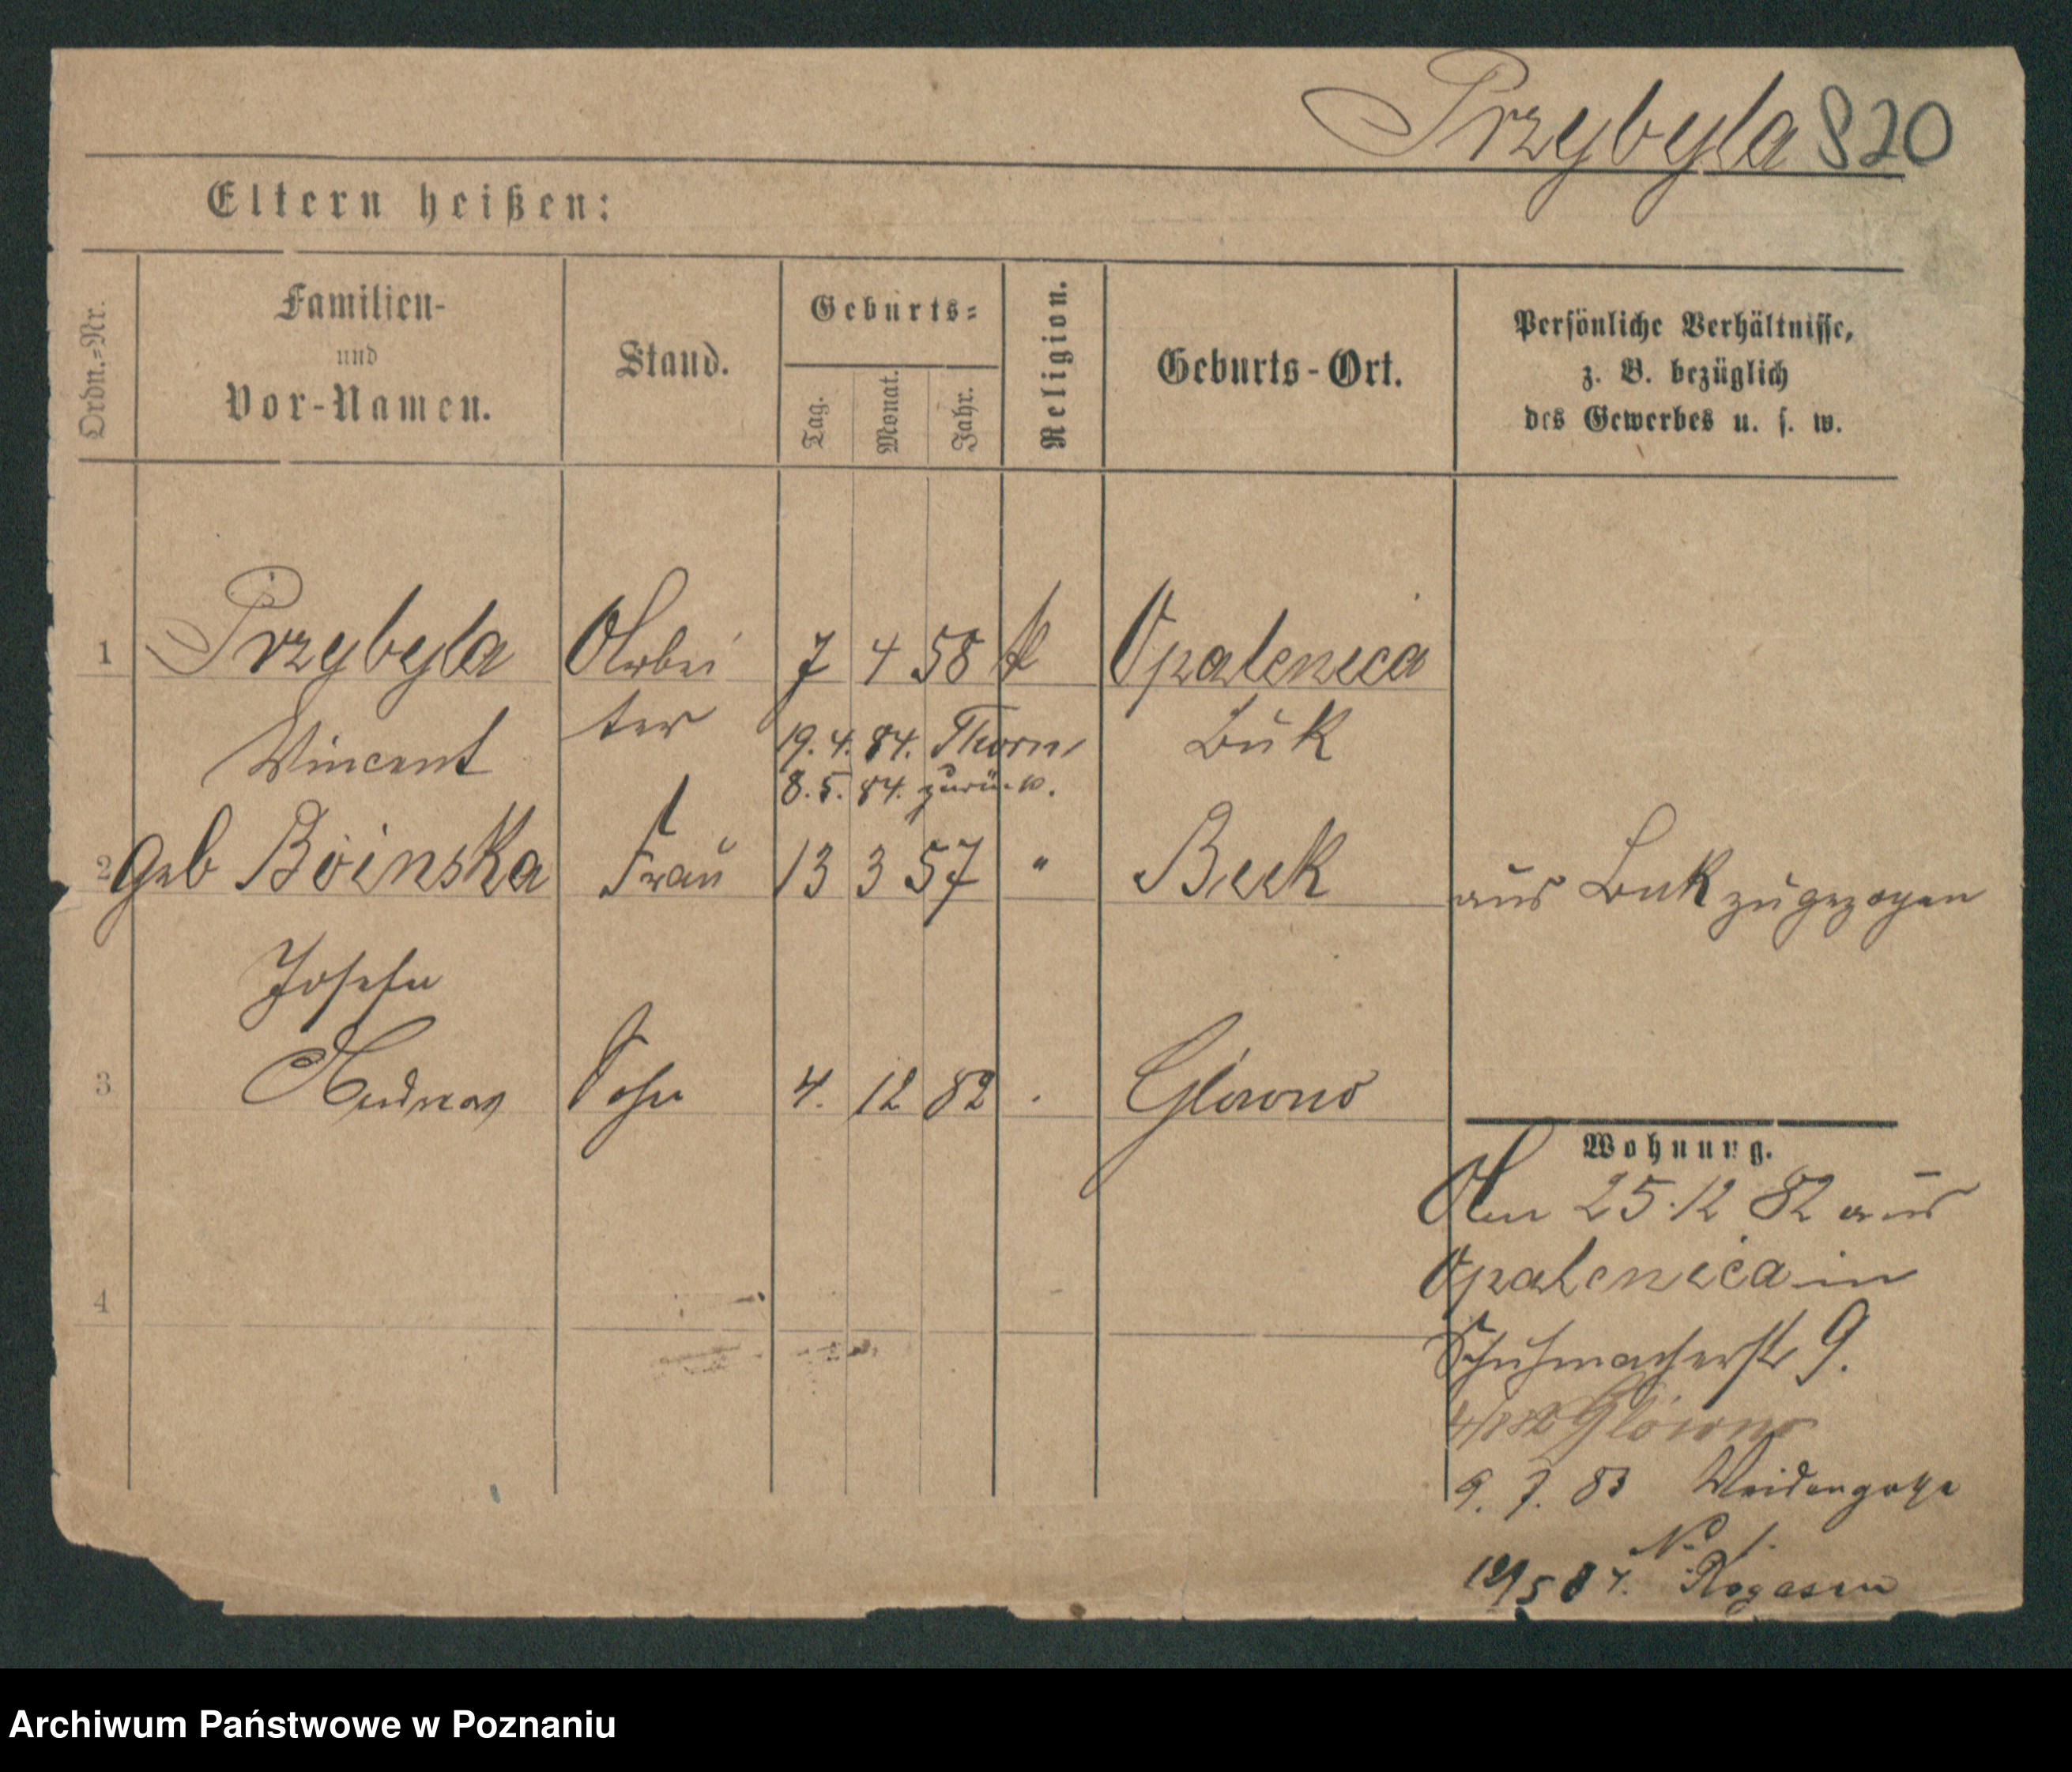 Przybyla 820
Eltern heißen:
Ordn.-Nr.
Familien-
und
Vor-Namen.
Stand.
Geburts-
Tag.
Monat.
Jahr.
Religion.
Geburts-Ort.
Persönliche Verhältnisse,
z. B. bezüglich
des Gewerbes u. s. w.
1 Przybyla Arbei 7 4 58 k Opalenica
Vincent ter 19. 4. 84. Thorn, Buk
8. 5. 84. zurück.
2 geb Boinska Frau 13 3 57 " Buk aus Buk zugezogen
Josefa
3 Andreas Sohn 4. 12 82 Glowno
Wohnung.
Am 25.12 82 aus
Opalenica in
4
Schuhmacherstr 9.
Glowno
9. 7. 83 Weidengasse
No 1.
19/5 84. Rogasen
Archiwum Państwowe w Poznaniu